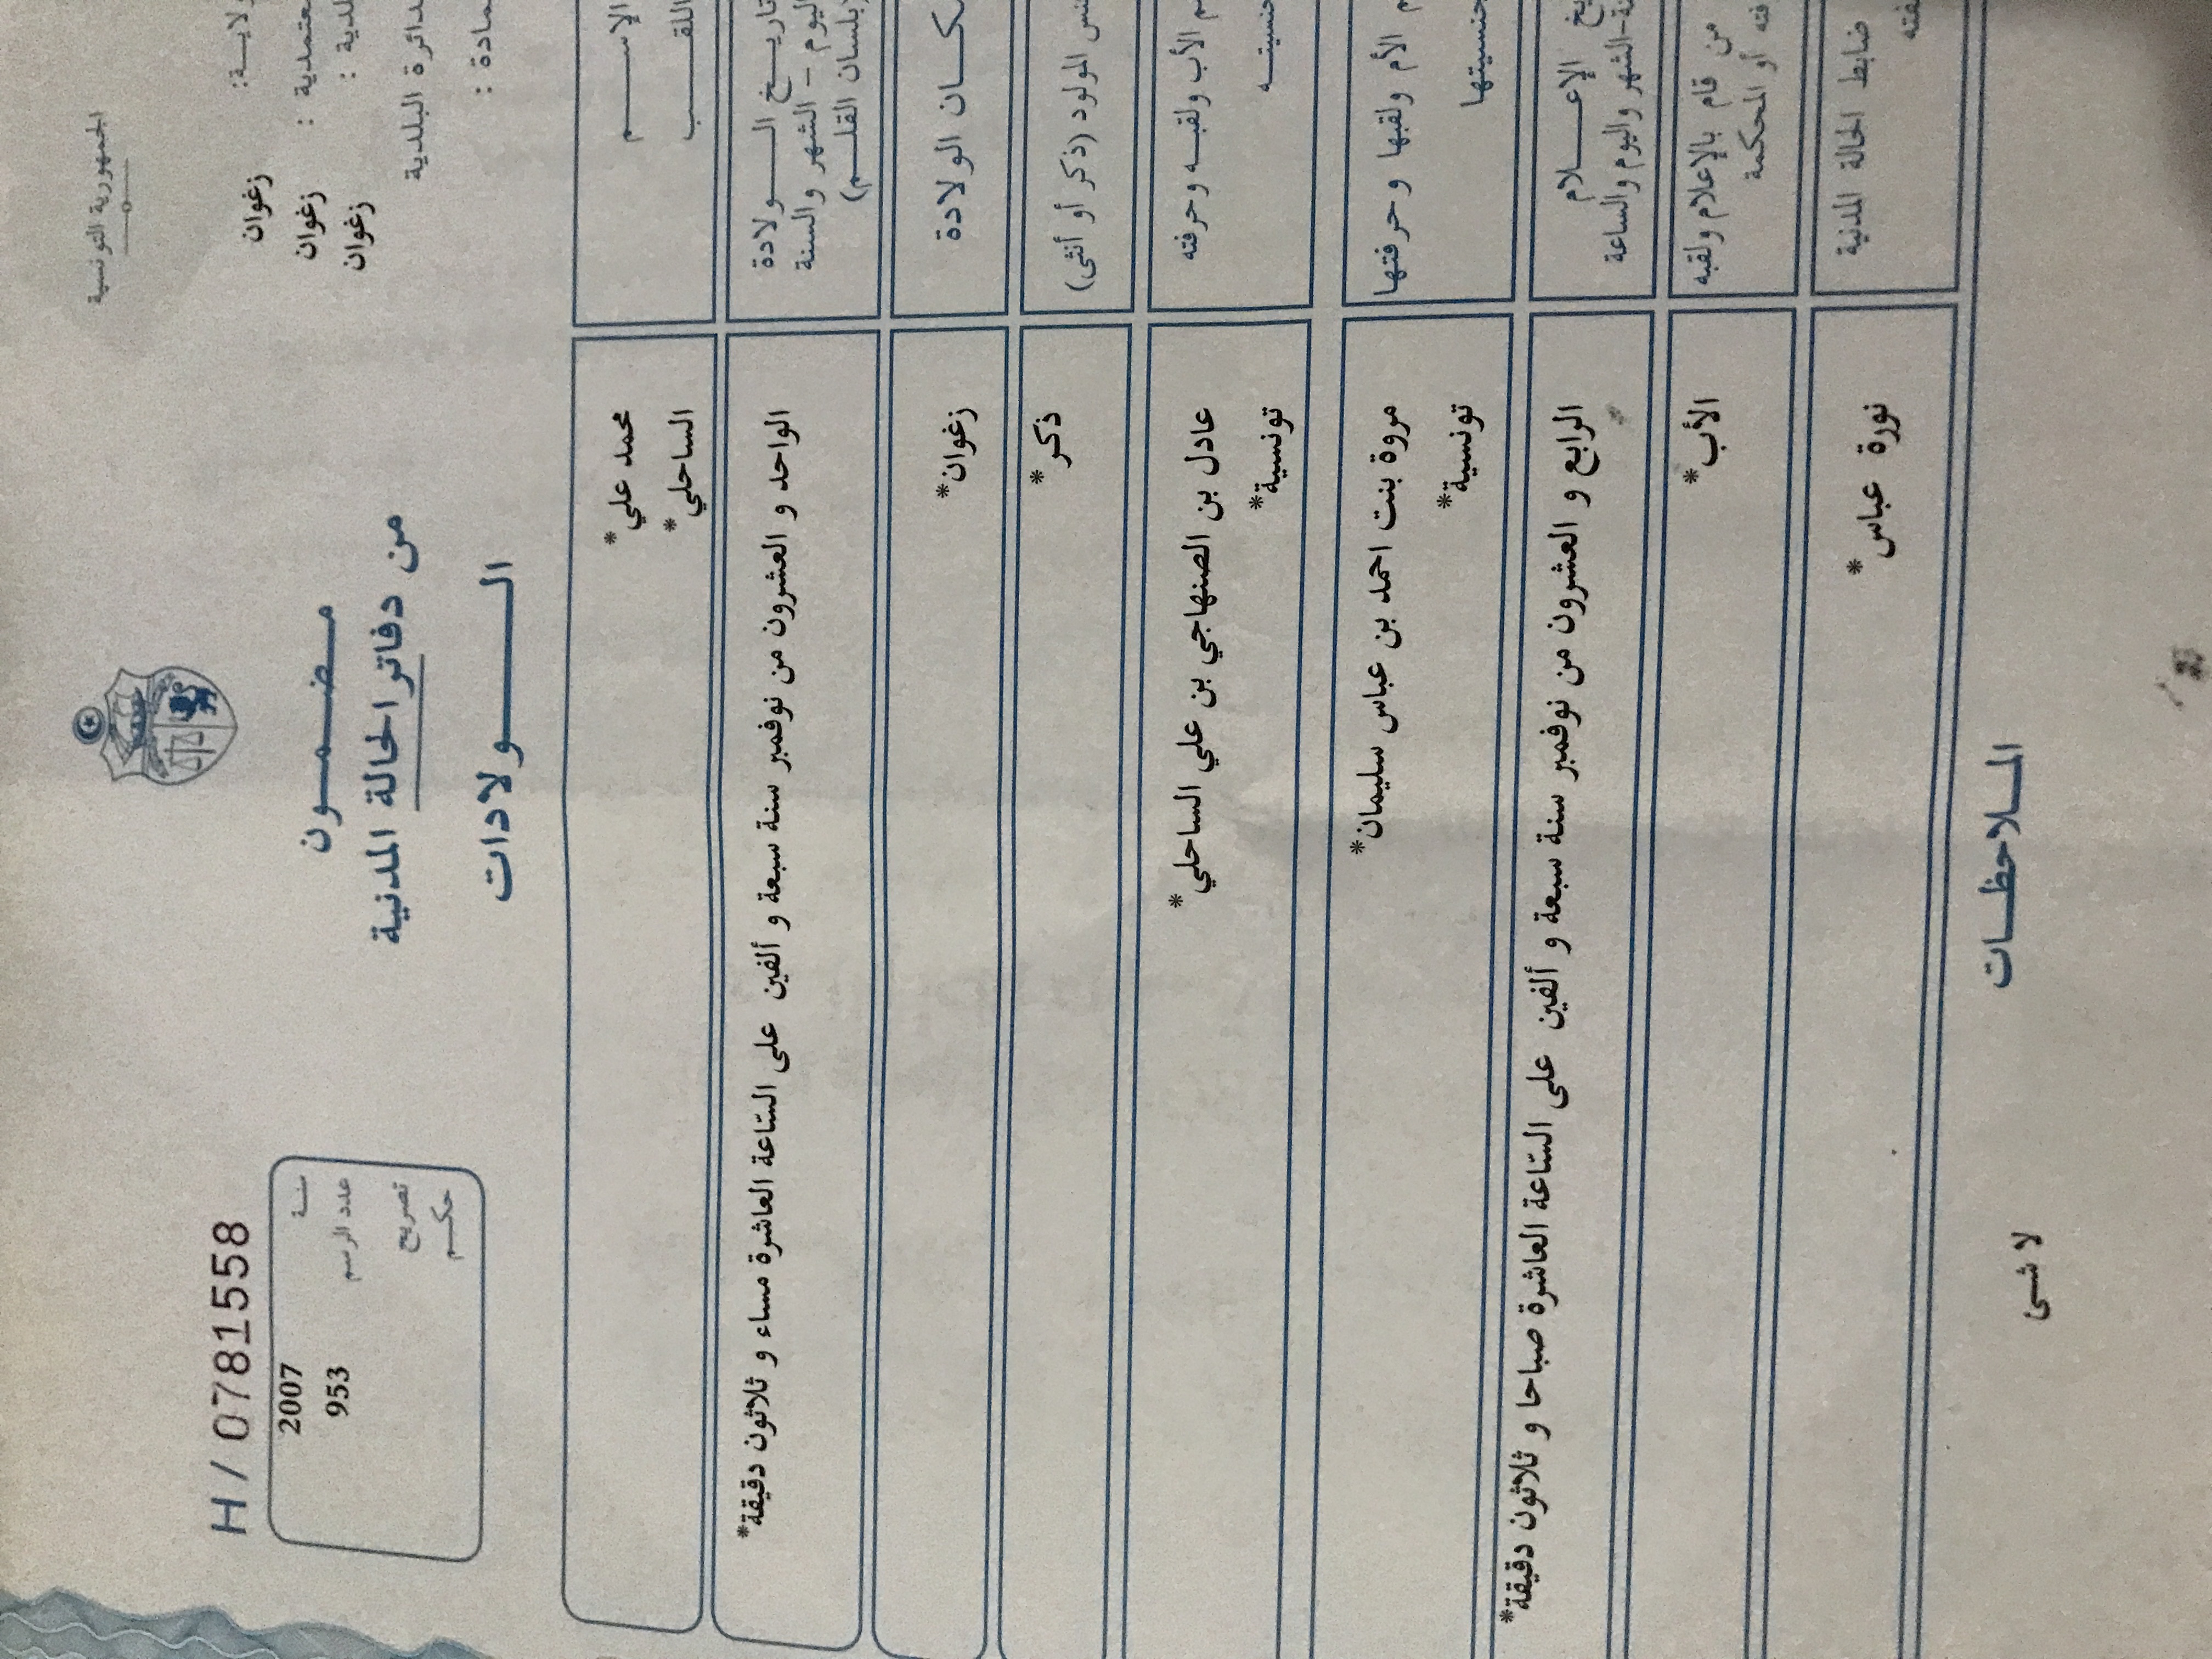 الجمهورية التونسية
H / 0781558
2007
سنة
953
عدد الرسم
تصريح
حكم
زغوان
زغوان
زغوان
مضمون
من دفاتر الحالة المدنية
الولادات
محمد علي*
الساحلي*
الإسم
اللقب
الواحد و العشرون من نوفمبر سنة سبعة و ألفين على الساعة العاشرة مساء و ثلاثون دقيقة*
تاريخ الولادة
اليوم – الشهر والسنة
(بلسان القلم)
زغوان*
مكان الولادة
ذكر*
المولود (ذكر أو أنثى)
عادل بن الصنهاجي بن علي الساحلي*
تونسية*
الأب ولقبه وحرفته
مروة بنت احمد بن عباس سليمان*
تونسية*
الأم ولقبها وحرفتها
جنسيتها
الرابع و العشرون من نوفمبر سنة سبعة و ألفين على الساعة العاشرة صباحا و ثلاثون دقيقة*
الإعلام
الشهر واليوم والساعة
الأب*
من قام بالإعلام ولقبه
أو المحكمة
نورة عباس*
ضابط الحالة المدنية
الملاحظات
لا شئ